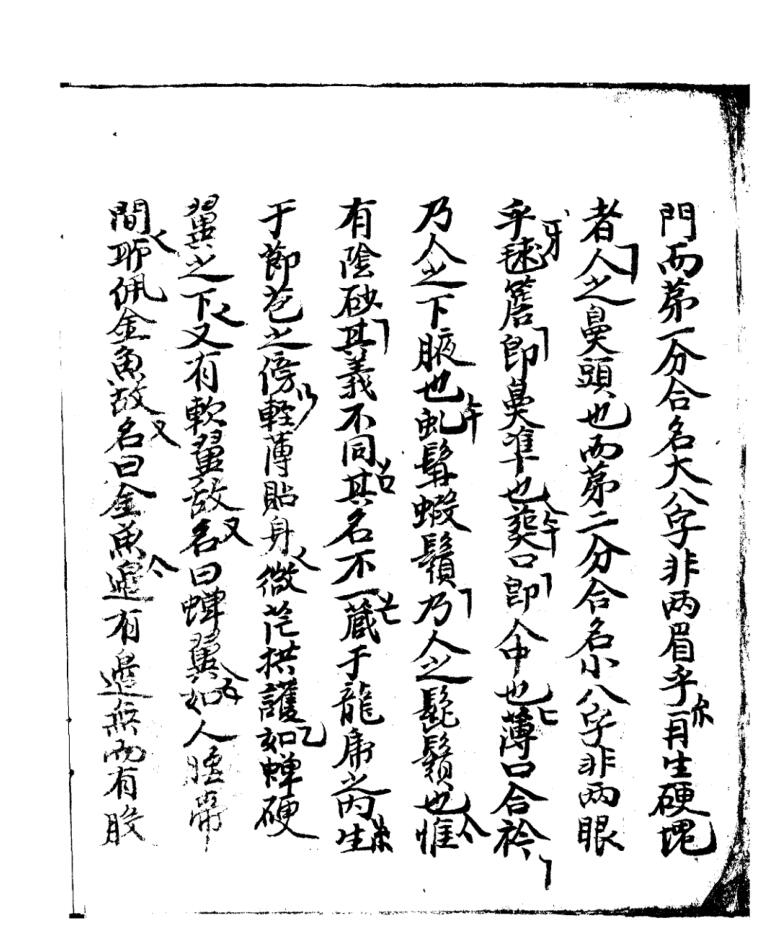 門而苐一分合名大八字非兩眉乎生硬塊
者人之鼻頭也而苐二分合名小八字非兩眼
乎毬簷即鼻準也葬口即人中也薄口合衿
乃人之下腋也虬髯蝦鬚乃人之髭鬚也惟
有陰砂其義不同其名不一蔵于龍虎之內生
于節苞之傍輕薄貼身微茫拱護如蟬硬
翼之下又有軟翼故名曰蟬翼如人帶
間聊佩金魚故名曰金魚邊有邊無而有股